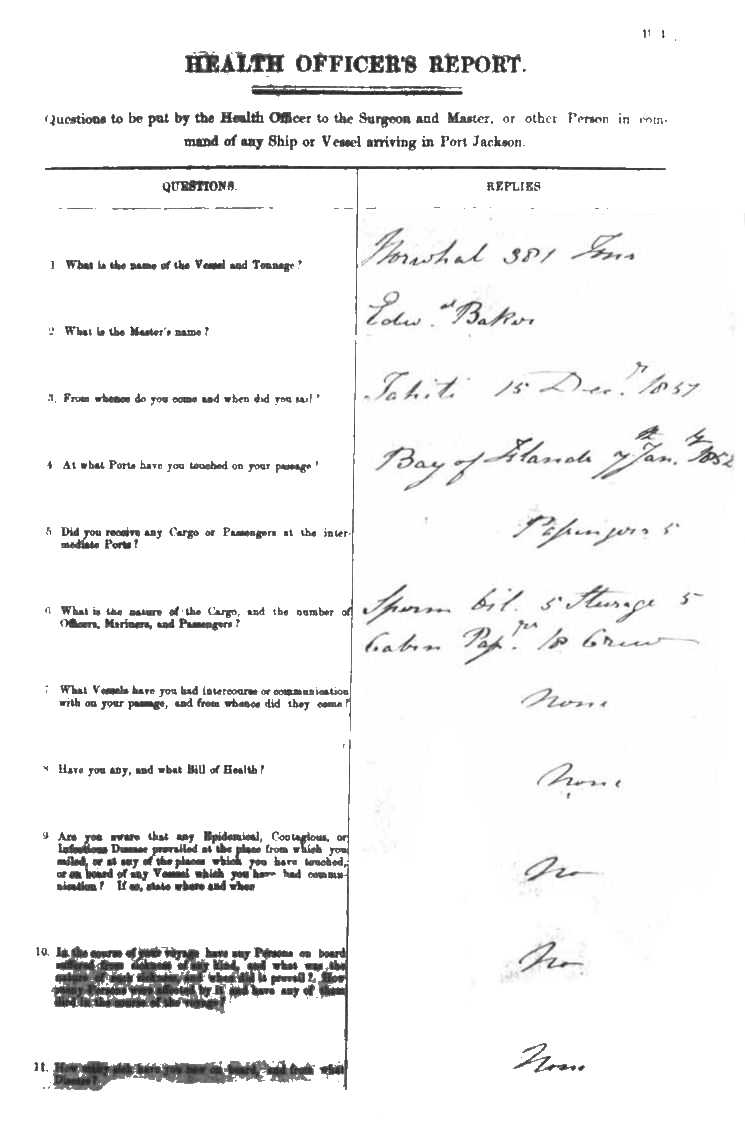 HEALTH OFFICER'S REPORT.
Questions to be put by the Health Officer to the Surgeon and Master, or other Person in com-
mand of any Ship or Vessel arriving in Port Jackson.
QUESTIONS.
REPLIES
1 What is the name of the Vessel and Tonnage?
Norwhal 381 Tons
2 What is the Master's name?
Edwd. Baker
3. From whence do you come and when did you sail?
Tahiti 15 Decr. 1851
4 At what Ports have you touched on your passage?
Bay of Islands 7th Jany. 1852
5 Did you receive any Cargo or Passengers at the inter-
mediate Ports?
Passengers 5
6 What is the nature of the Cargo, and the number of
Officers, Mariners, and Passengers?
Sperm Oil. 5 Sturage 5
Cabin Passrs. 18 Crew
7 What Vessels have you had intercourse or communication
with on your passage, and from whence did they come?
None
8 Have you any, and what Bill of Health?
None
9 Are you aware that any Epidemical, Contagious, or
Infectious Disease prevailed at the place from which you
sailed, or at any of the places which you have touched,
or on board of any Vessel which you have had commu-
nication? If so, state where and when
No
10. In the course of your voyage have any Persons on board
suffered from sickness of any kind, and what was the
nature of such sickness, and when did it prevail? How
many Persons were affected by it and have any of them
died in the course of the voyage?
No
11. How many sick have you now on board, and from what
Disease?
None